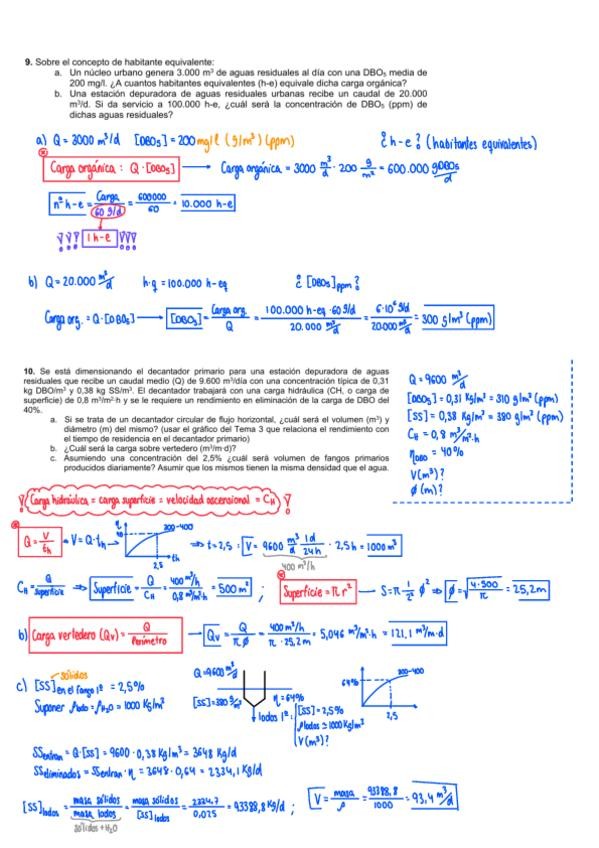 9. Sobre el concepto de habitante equivalente:
a. Un núcleo urbano genera 3.000 m³ de aguas residuales al día con una DBO₅ media de
200 mg/l. ¿A cuantos habitantes equivalentes (h-e) equivale dicha carga orgánica?
b. Una estación depuradora de aguas residuales urbanas recibe un caudal de 20.000
m³/d. Si da servicio a 100.000 h-e, ¿cuál será la concentración de DBO₅ (ppm) de
dichas aguas residuales?
a) Q = 3000 m³/d [DBO₅] = 200 mg/l (g/m³) (ppm) ¿h-e? (habitantes equivalentes)
Carga orgánica : Q · [DBO₅] → Carga orgánica = 3000 m³/d · 200 g/m³ = 600.000 gDBO₅/d
nº h-e = Carga/60 g/d = 600000/60 = 10.000 h-e
1 h-e
b) Q = 20.000 m³/d h·q = 100.000 h-eq ¿[DBO₅]ppm?
Carga org. = Q·[DBO₅] → [DBO₅] = Carga org./Q = 100.000 h-eq · 60 g/d / 20.000 m³/d = 6·10⁶ g/d / 20.000 m³/d = 300 g/m³ (ppm)
10. Se está dimensionando el decantador primario para una estación depuradora de aguas
residuales que recibe un caudal medio (Q) de 9.600 m³/día con una concentración típica de 0,31
kg DBO/m³ y 0,38 kg SS/m³. El decantador trabajará con una carga hidráulica (CH, o carga de
superficie) de 0,8 m³/m²·h y se le requiere un rendimiento en eliminación de la carga de DBO del
40%.
a. Si se trata de un decantador circular de flujo horizontal, ¿cuál será el volumen (m³) y
diámetro (m) del mismo? (usar el gráfico del Tema 3 que relaciona el rendimiento con
el tiempo de residencia en el decantador primario)
b. ¿Cuál será la carga sobre vertedero (m³/m·d)?
c. Asumiendo una concentración del 2,5% ¿cuál será volumen de fangos primarios
producidos diariamente? Asumir que los mismos tienen la misma densidad que el agua.
Q = 9600 m³/d
[DBO₅] = 0,31 Kg/m³ = 310 g/m³ (ppm)
[SS] = 0,38 Kg/m³ = 380 g/m³ (ppm)
C_H = 0,8 m³/m²·h
η_DBO = 40%
V(m³)?
ø(m)?
Carga hidráulica = carga superficie = velocidad ascensional = C_H
Q = V/t_h → V = Q·t_h → η 40 300-400 2,5 th ⇒ t = 2,5 : V = 9600 m³/d · 1d/24h · 2,5h = 1000 m³
400 m³/h
C_H = Q/Superficie ⇒ Superficie = Q/C_H = 400 m³/h / 0,8 m³/m²·h = 500 m² ; Superficie = π r² → S = π · 1/2² ø² ⇒ ø = √(4·500/π) = 25,2 m
b) Carga vertedero (Qv) = Q/Perímetro → Qv = Q/πø = 400 m³/h / π · 25,2 m = 5,046 m³/m·h = 121,1 m³/m·d
sólidos
c) [SS] en el fango 1º = 2,5%
Suponer ρlodo = ρH₂O = 1000 Kg/m³
Q = 9600 m³/d
[SS] = 380 g/m³ η = 64%
lodos 1º: [SS] = 2,5%
ρlodos ≃ 1000 Kg/m³
V(m³)?
64% 300-400
2,5
SSentran = Q·[SS] = 9600 · 0,38 Kg/m³ = 3648 Kg/d
SSeliminados = SSentran · η = 3648 · 0,64 = 2334,1 Kg/d
[SS]lodos = masa sólidos/masa lodos = masa sólidos/[SS]lodos = 2334,7/0,025 = 93388,8 Kg/d ; V = masa/ρ = 93388,8/1000 = 93,4 m³/d
sólidos + H₂O